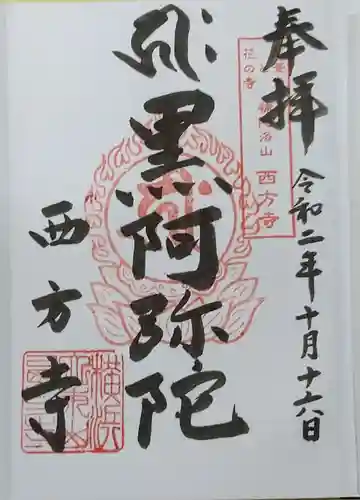 奉拝
令和二年十月十六日
花の寺
西方寺
黒阿弥陀
西方寺
横浜